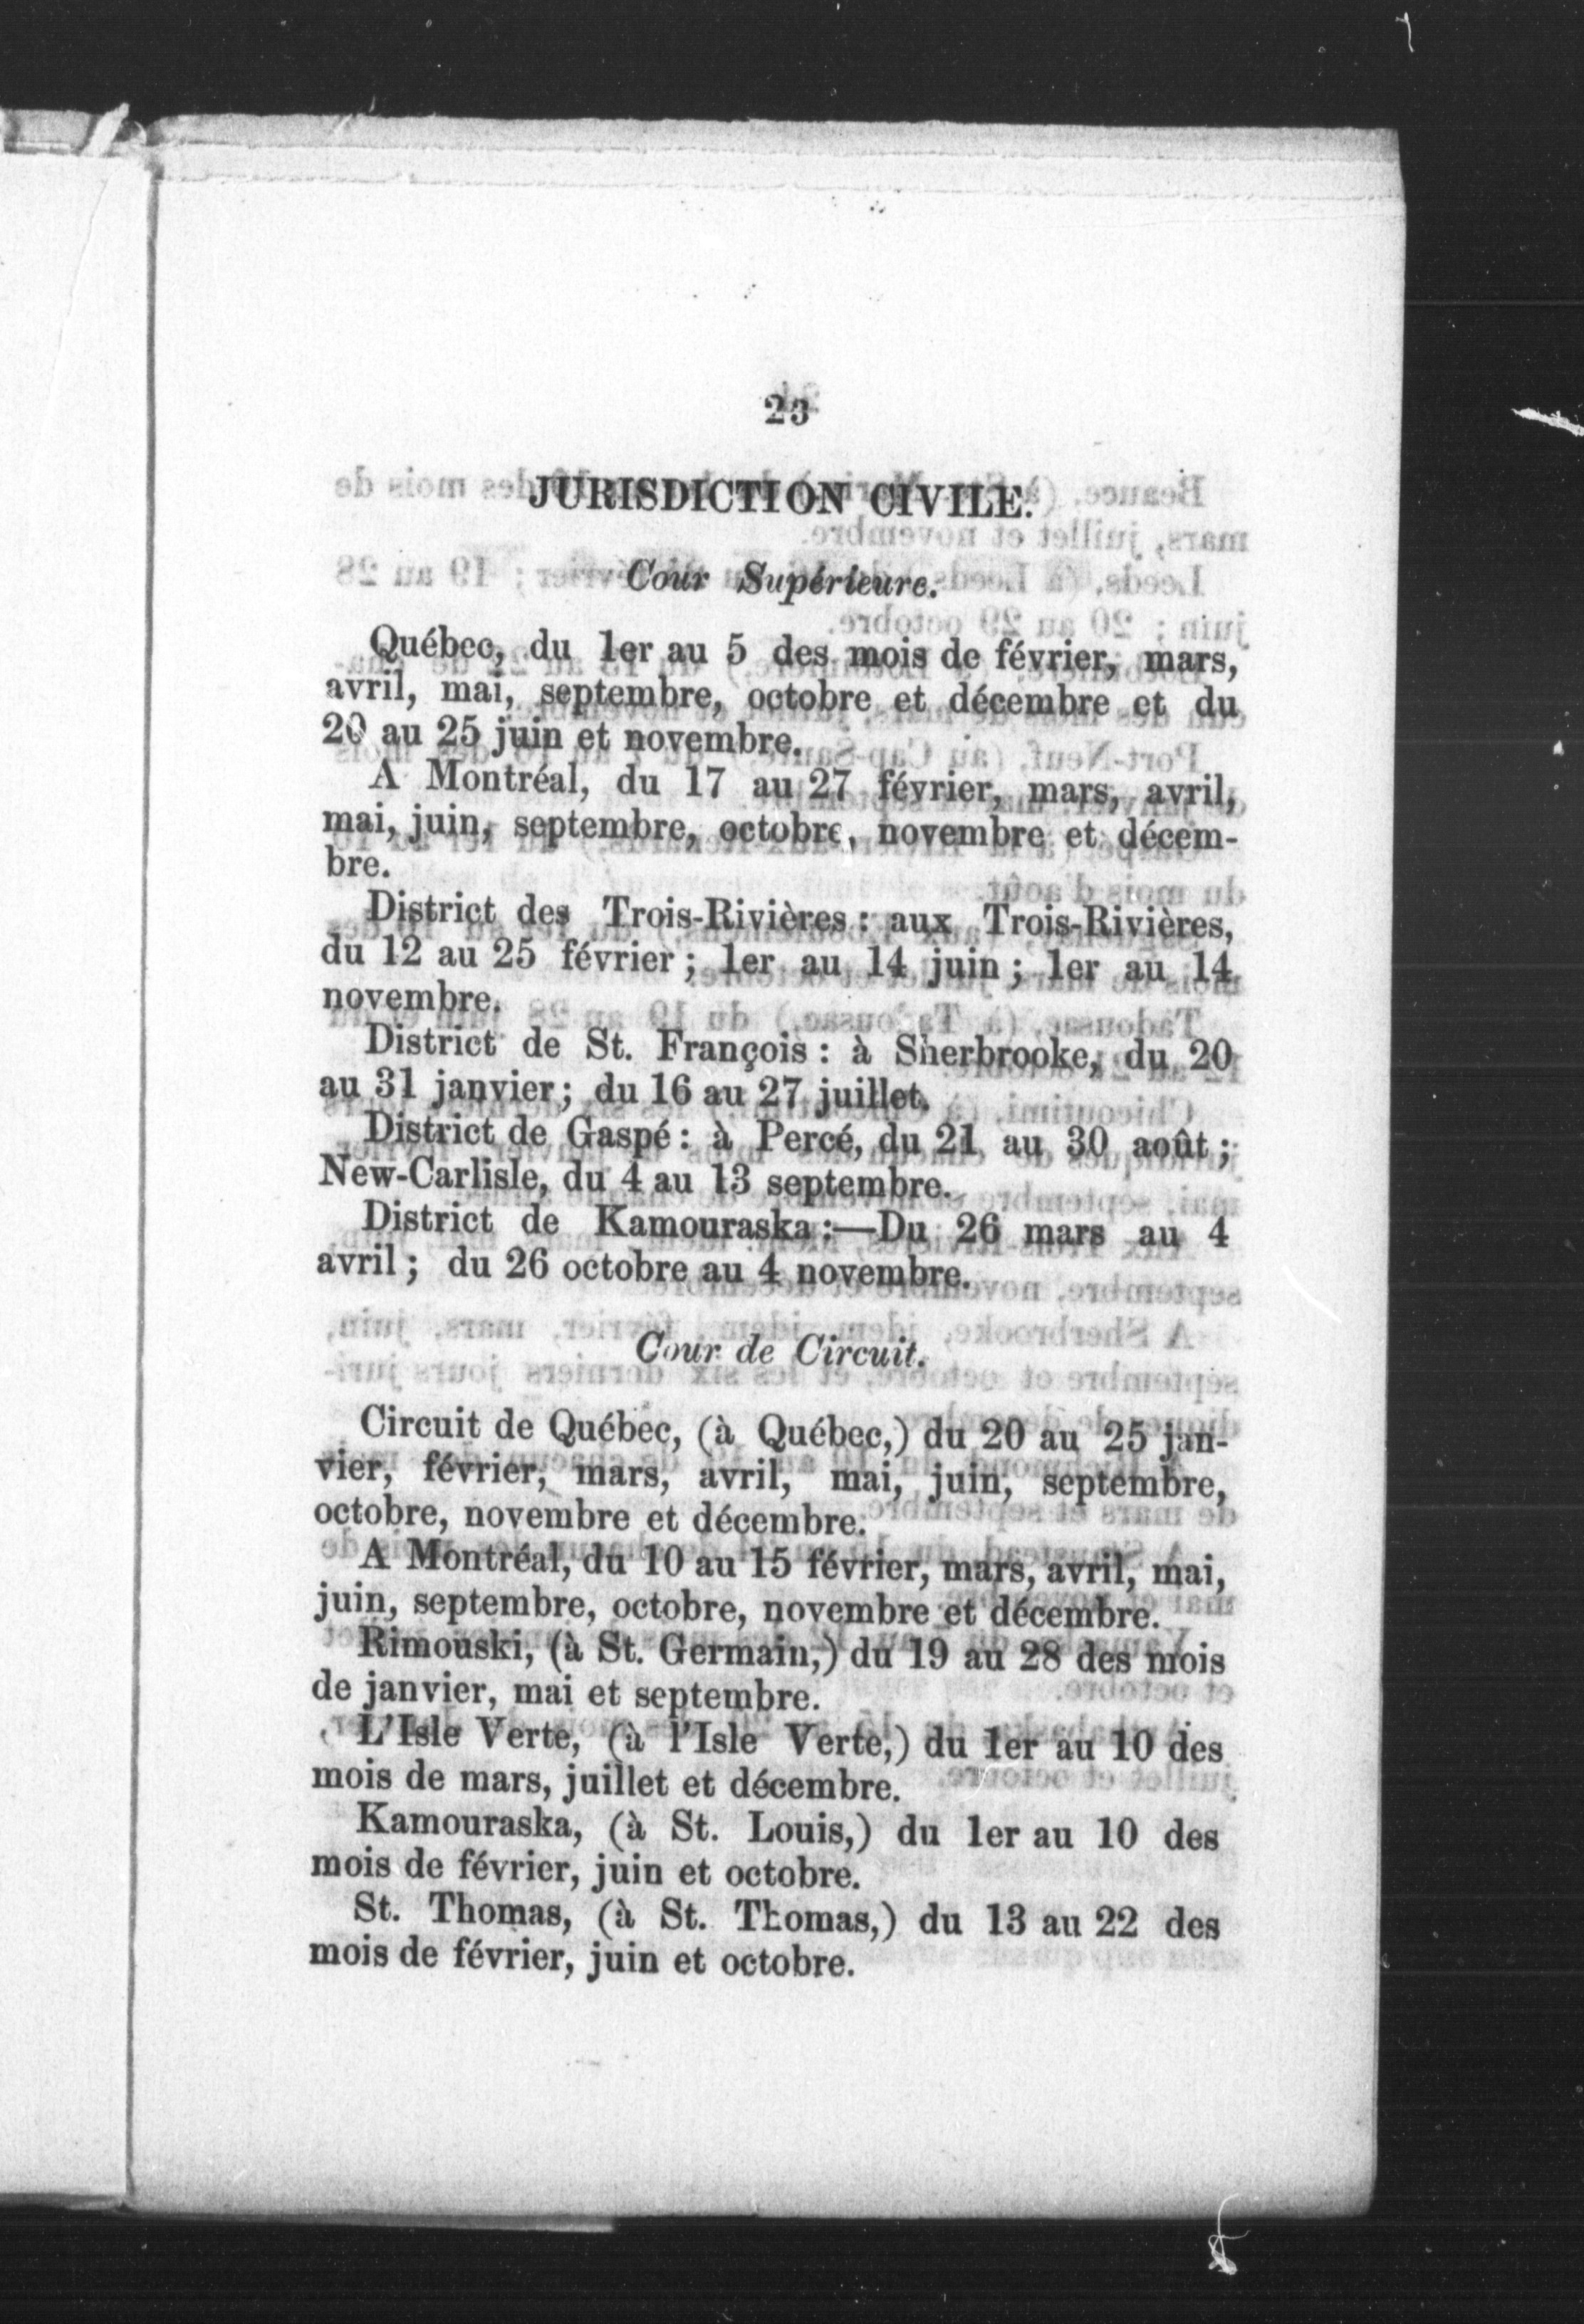 23
JURISDICTION CIVILE.
Cour Supérieure.
Québec, du 1er au 5 des mois de février, mars,
avril, mai, septembre, octobre et décembre et du
20 au 25 juin et novembre.
A Montréal, du 17 au 27 février, mars, avril,
mai, juin, septembre, octobre, novembre et décem-
bre.
District des Trois-Rivières : aux Trois-Rivières,
du 12 au 25 février ; 1er au 14 juin ; 1er au 14
novembre.
District de St. François : à Sherbrooke, du 20
au 31 janvier ; du 16 au 27 juillet.
District de Gaspé : à Percé, du 21 au 30 août ;
New-Carlisle, du 4 au 13 septembre.
District de Kamouraska :—Du 26 mars au 4
avril ; du 26 octobre au 4 novembre.
Cour de Circuit.
Circuit de Québec, (à Québec,) du 20 au 25 jan-
vier, février, mars, avril, mai, juin, septembre,
octobre, novembre et décembre.
A Montréal, du 10 au 15 février, mars, avril, mai,
juin, septembre, octobre, novembre et décembre.
Rimouski, (à St. Germain,) du 19 au 28 des mois
de janvier, mai et septembre.
L'Isle Verte, (à l'Isle Verte,) du 1er au 10 des
mois de mars, juillet et décembre.
Kamouraska, (à St. Louis,) du 1er au 10 des
mois de février, juin et octobre.
St. Thomas, (à St. Thomas,) du 13 au 22 des
mois de février, juin et octobre.